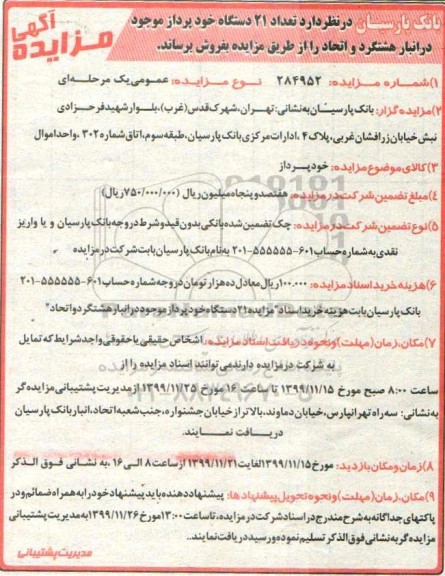 آگهی مزایده
بانک پارسیان در نظر دارد تعداد ۲۱ دستگاه خود پرداز موجود
در انبار هشتگرد و اتحاد را از طریق مزایده بفروش برساند.
۱) شماره مزایده: ۲۸۴۹۵۲ نوع مزایده: عمومی یک مرحله‌ای
۲) مزایده گزار: بانک پارسیان به نشانی: تهران، شهرک قدس (غرب)، بلوار شهید فرحزادی
نبش خیابان زرافشان غربی، پلاک ۴، ادارات مرکزی بانک پارسیان، طبقه سوم، اتاق شماره ۳۰۲، واحد اموال
۳) کالای موضوع مزایده: خود پرداز
۴) مبلغ تضمین شرکت در مزایده: هفتصد و پنجاه میلیون ریال (۷۵۰/۰۰۰/۰۰۰ ریال)
۵) نوع تضمین شرکت در مزایده: چک تضمین شده بانکی بدون قید و شرط در وجه بانک پارسیان و یا واریز
نقدی به شماره حساب ۶۰۱-۵۵۵۵۵۵-۲۰۱ به نام بانک پارسیان بابت شرکت در مزایده
۶) هزینه خرید اسناد مزایده: ۱۰۰.۰۰۰ ریال معادل ده هزار تومان در وجه شماره حساب ۶۰۱-۵۵۵۵۵۵-۲۰۱
بانک پارسیان بابت هزینه خرید اسناد "مزایده ۲۱ دستگاه خود پرداز موجود در انبار هشتگرد و اتحاد"
۷) مکان، زمان (مهلت) و نحوه دریافت اسناد مزایده: اشخاص حقیقی یا حقوقی واجد شرایط که تمایل
به شرکت در مزایده دارند می توانند اسناد مزایده را از
ساعت ۸:۰۰ صبح مورخ ۱۳۹۹/۱۱/۱۵ تا ساعت ۱۶ مورخ ۱۳۹۹/۱۱/۲۵ از مدیریت پشتیبانی مزایده گر
به نشانی: سه راه تهرانپارس، خیابان دماوند، بالاتر از خیابان جشنواره، جنب شعبه اتحاد، انبار بانک پارسیان
دریافت نمایند.
۸) زمان و مکان بازدید: مورخ ۱۳۹۹/۱۱/۱۵ لغایت ۱۳۹۹/۱۱/۲۱ از ساعت ۸ الی ۱۶، به نشانی فوق الذکر
۹) مکان، زمان (مهلت) و نحوه تحویل پیشنهادها: پیشنهاد دهنده باید پیشنهاد خود را به همراه ضمائم و در
پاکتهای جداگانه به شرح مندرج در اسناد شرکت در مزایده، تا ساعت ۱۳:۰۰ مورخ ۱۳۹۹/۱۱/۲۶ به مدیریت پشتیبانی
مزایده گر به نشانی فوق الذکر تسلیم نموده و رسید دریافت نمایند..
مدیریت پشتیبانی